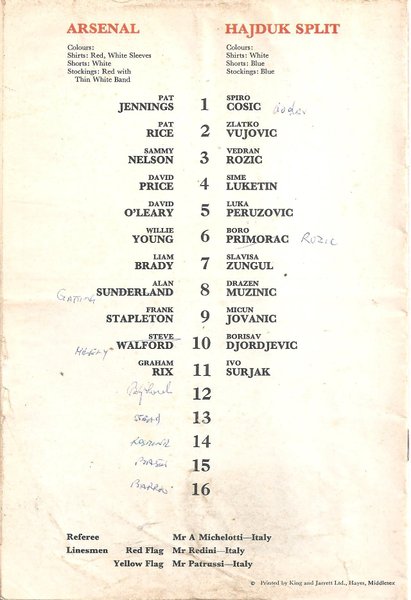 ARSENAL HAJDUK SPLIT
Colours: Colours:
Shirts: Red, White Sleeves Shirts: White
Shorts: White Shorts: Blue
Stockings: Red with Stockings: Blue
Thin White Band
PAT SPIRO
JENNINGS 1 COSIC
PAT ZLATKO
RICE 2 VUJOVIC
SAMMY VEDRAN
NELSON 3 ROZIC
DAVID SIME
PRICE 4 LUKETIN
DAVID LUKA
O'LEARY 5 PERUZOVIC
WILLIE BORO
YOUNG 6 PRIMORAC ROZIC
LIAM SLAVISA
BRADY 7 ZUNGUL
ALAN DRAZEN
GATTING SUNDERLAND 8 MUZINIC
FRANK MICUN
STAPLETON 9 JOVANIC
STEVE BORISAV
WALFORD 10 DJORDJEVIC
GRAHAM IVO
RIX 11 SURJAK
12
13
14
15
16
Referee Mr A Michelotti—Italy
Linesmen Red Flag Mr Redini—Italy
Yellow Flag Mr Patrussi—Italy
© Printed by King and Jarrett Ltd., Hayes, Middlesex